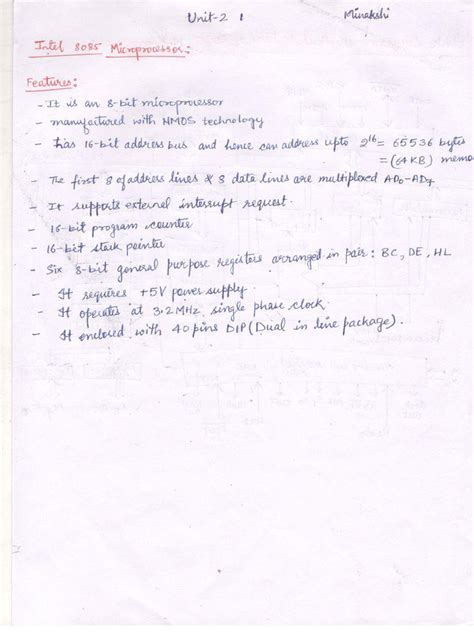 Unit-2 1 Minakshi
Intel 8085 Microprocessor:
Features:
- It is an 8-bit microprocessor
- manufactured with NMOS technology
- has 16-bit address bus and hence can address upto 2^16 = 65536 bytes
= (64 KB) memo
- The first 8 of address lines & 8 data lines are multiplexed AD0-AD7
- It supports external interrupt request.
- 16-bit program counter
- 16-bit stack pointer
- Six 8-bit general purpose registers arranged in pair: BC, DE, HL
- It requires +5V power supply.
- It operates at 3.2 MHz, single phase clock.
- It enclosed with 40 pins DIP (Dual in line package).